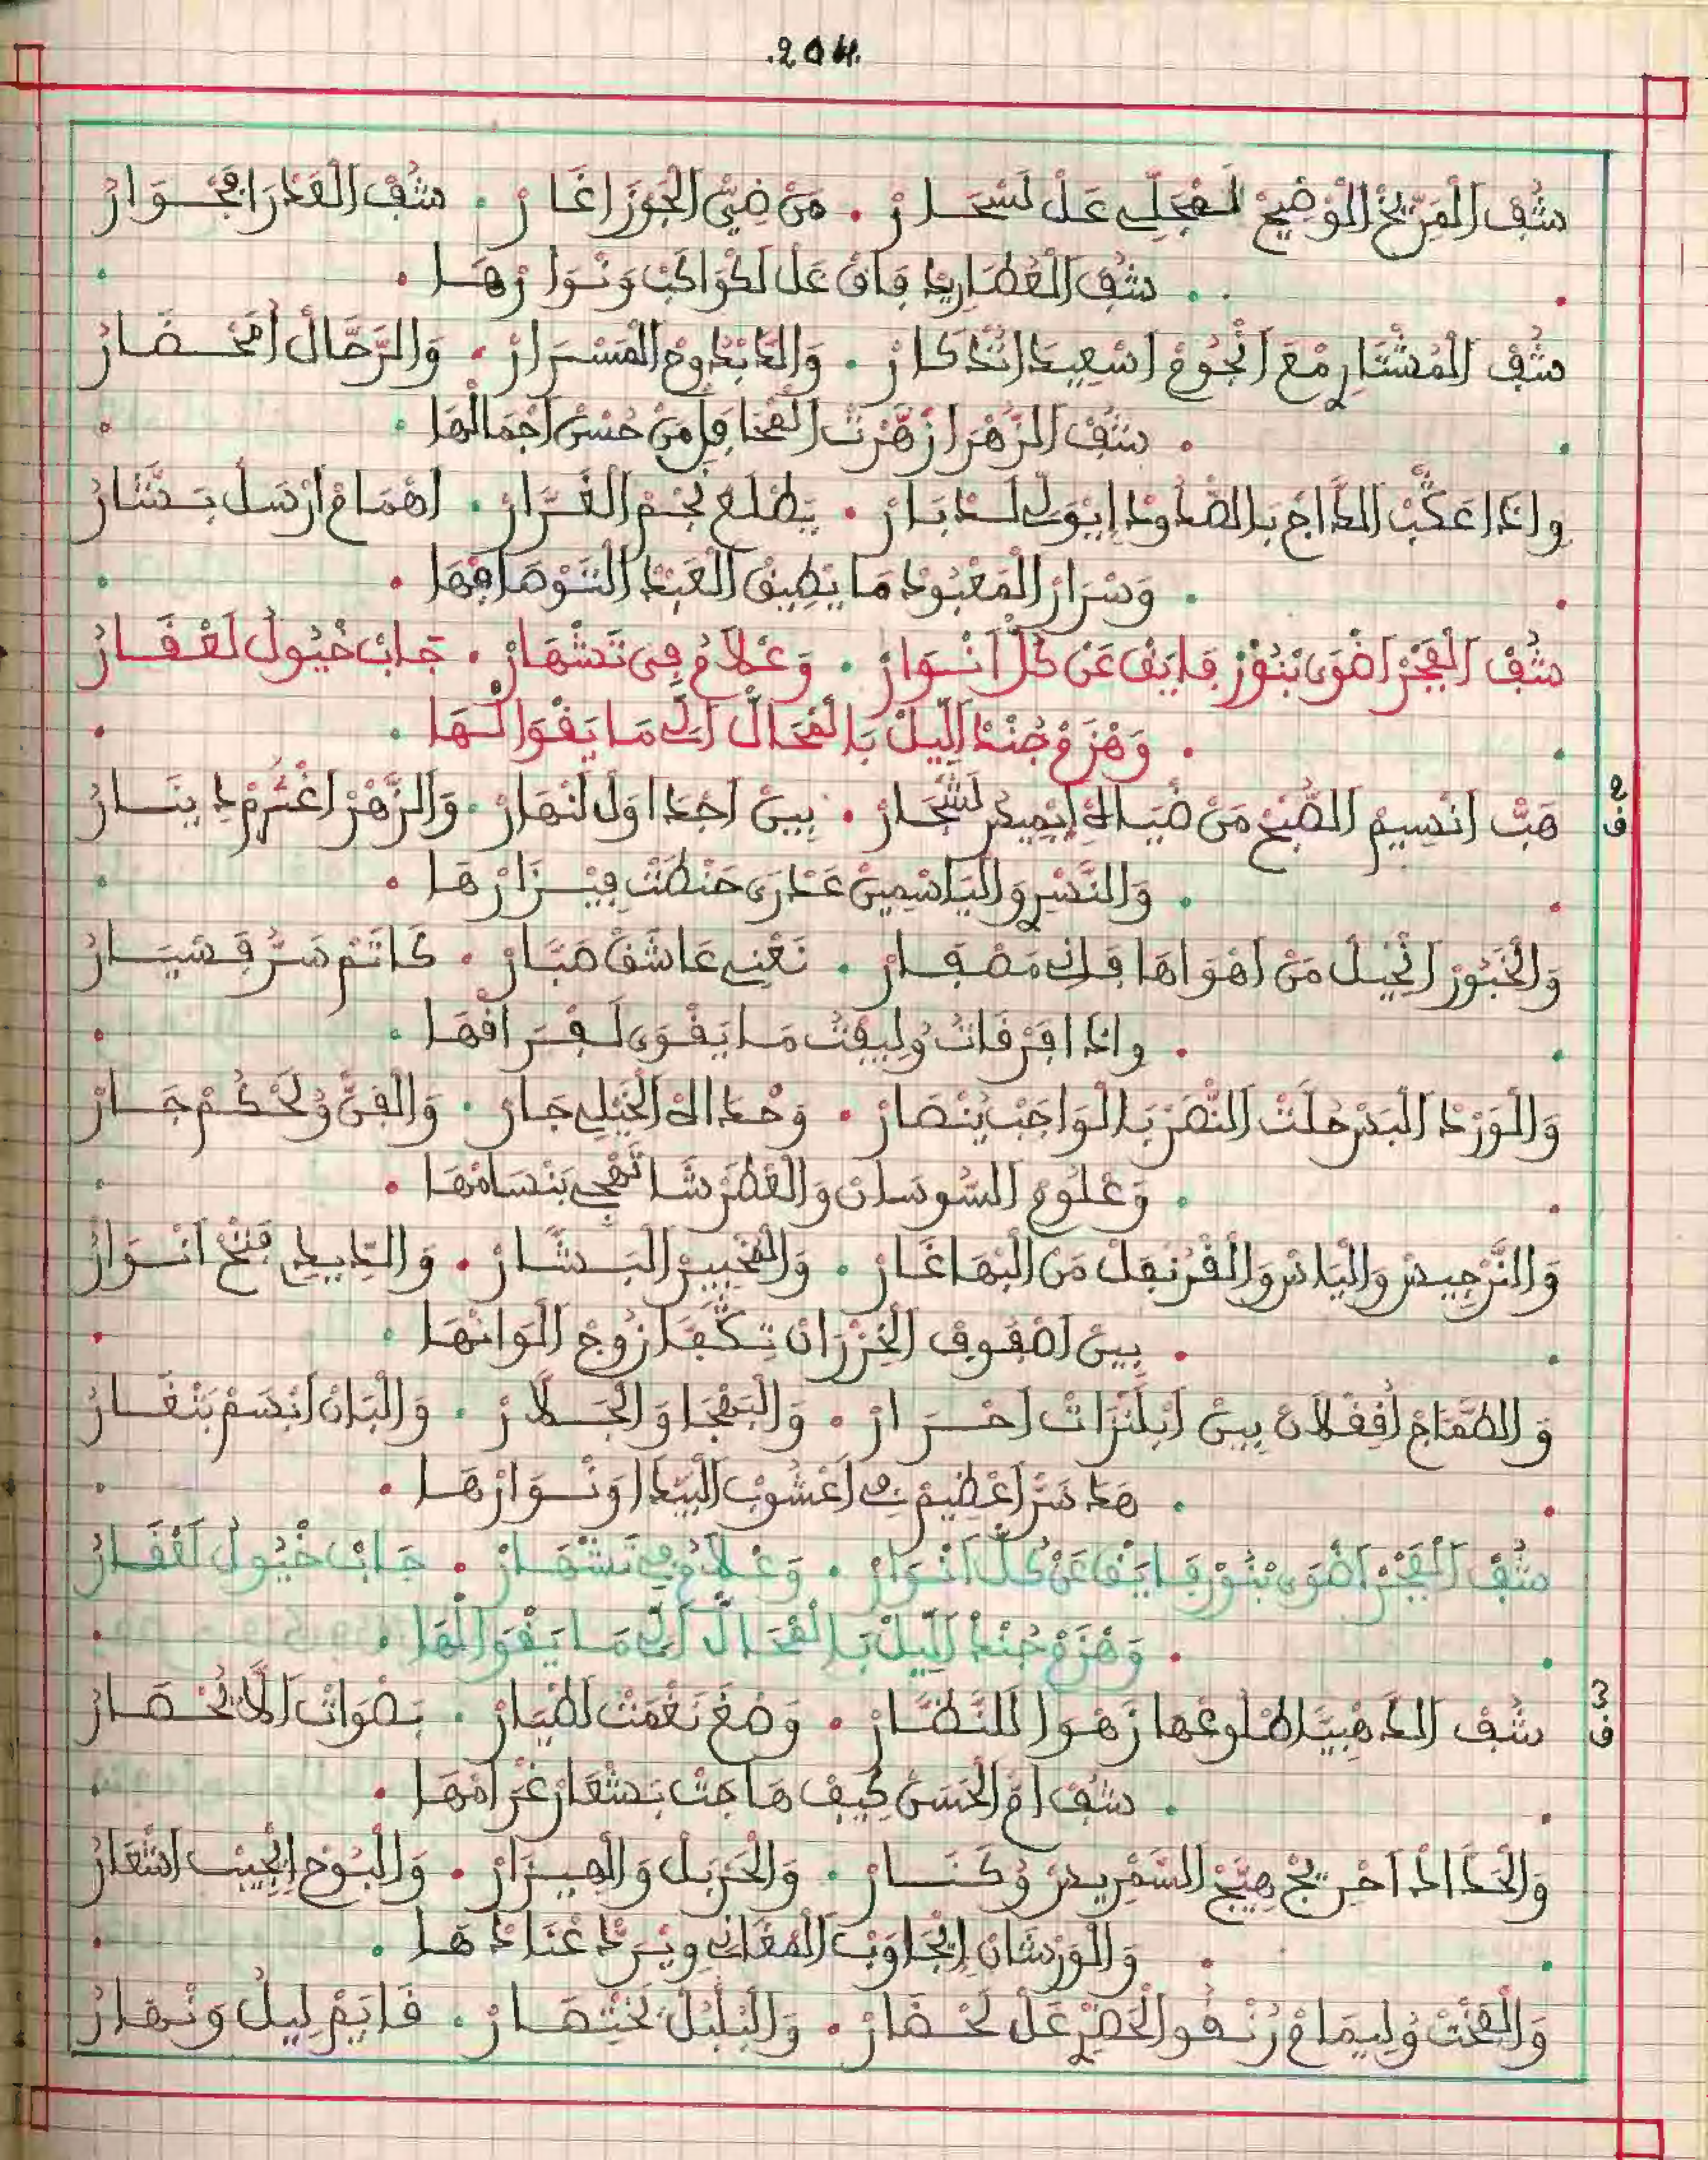 .204.
شُفْ الْمَرِّيخْ الْوْضِيحْ لَفْجَلِّي عَلْ لَسْحَارْ . مَنْ ضِيّ الْجَوْزَا غَارْ . شُفْ الْقَدْرَا فَجْوَارْ
شُفْ الْعُطَارِيدْ فَاقْ عَلْ لَكْوَاكَبْ وَنْوَارْهَا
شُفْ الْمُشْتَارِي مْعَ انْجُومْ اسْعِيدَ اتْدْكَارْ . وَالدَّابْدُوحْ الْمَسْرَارْ . وَالرَّحَّالْ امْحْضَارْ
شُفْ الزَّهْرَا زَهْرَتْ الْفْخَافَلْ مَنْ حُسْنْ اجْمَالْهَا
وِإِدَا عَكَّبْ الدَّاجْ بَالضْدُودْ إِيْوَلِّي لَدْبَارْ . يَطْلَعْ نْجْمْ الْغَرَّارْ . اهْمَامْ ارْسَلْ بَشَّارْ
وَسْرَارْ الْمَعْبُودْ مَا يْطِيقْ الْعَبْدْ لِتَوْصَافْهَا
شُفْ الْفْجَرْ اضْوَى بْنُورْ فَايَقْ عَنْ كُلّْ انْوَارْ . وَعْلَامُ فِي تَشْهَارْ . جَابْ خْيُولْ لَعْقَارْ
وَهْزَمْ جُنْدْ اللِّيلْ بَالْمْحَالّْ الِّي مَا يَقْوَا لْهَا
ف 2
هَبّْ انْسِيمْ الصُّبْحْ مَنْ ضْيَاهْ إِيْمِيدُ لَشْجَارْ . بِينْ اجْدَاوَلْ لَنْهَارْ . وَالزَّهْرْ اغْتَرَمْ دِينَارْ
وَالنَّسْرِي وَالْيَاسْمِينْ عَدْرَى حَنْطَتْ فِيزَارْهَا
وَالْخَبُّورْ انْحِيلْ مَنْ اهْوَاهَا فَانِي مَصْفَارْ . نَعْنِي عَاشَقْ صَبَّارْ . كَاتَمْ سَرُّ فَسْيَارْ
وِإِدَا افْرْقَاتُ وْلِيفْتُ مَا يَقْوَى لَفْرَاقْهَا
وَالْوَرْدْ الْبَدْرْ حُلْتْ النَّصْرْ بَالْوَاجَبْ يُنْصَارْ . وَحْدَاهْ الْخِيلِي جَارْ . وَالْفَنّْ وْلَحْكُمْ جَارْ
وَعْلُومْ السُّوسَانْ وَالْعْطَرْشَا تَهْجِي بَنْسَامْهَا
وَالنَّرْجِيسْ وَالْيَاسْ وَالْقْرُنْفَلْ مَنْ الْبْهَا غَارْ . وَالْخْبِيزْ الْبَشَّارْ . وَالدِّيدِي فْتَحْ انْوَارُ
بِينْ اصْفُوفْ الْخِزْرَانْ تَكّْفَا زُوجْ الْوَانْهَا
وَالطَّمَّامْ اقِقْلَانْ بِينْ ابْلَنْزَاتْ احْرَارْ . وَالْبَهْجَا وَالْجَلَّارْ . وَالْبَانْ انْسَمْ بَنْغَارْ
هَدَ سَرّْ اعْظِيمْ فِي اعْشُوبْ الْبِيدَا وَنْوَارْهَا
شُفْ الْفْجَرْ اضْوَى بْنُورْ فَايَقْ عَنْ كُلّْ انْوَارْ . وَعْلَامُ فِي تَشْهَارْ . جَابْ خْيُولْ لَعْقَارْ
وَهْزَمْ جُنْدْ اللِّيلْ بَالْمْحَالّْ الِّي مَا يَقْوَا لْهَا
ف 3
شُفْ الدَّهْبِيَّا طْلُوعْهَا زَهْوَا لَلنُّظَّارْ . وَصْغَ نَغْمَتْ لَطْيَارْ . بَصْوَاتْ الَّا تُحْصَارْ
شُفْ امّْ الْحَسَنْ كِيفْ هَاجَتْ بَشْعَارْ غْرَامْهَا
وَالْحَدَّادْ احْرِيجْ هِيَّجْ السَّمْرِيسْ وُكْنَارْ . وَالْحَرْبَلْ وَالْهِيزَارْ . وَالْبُوحْ إِيْجِيبْ اشْعَارْ
وَالْوَرْشَانْ إِيْجَاوَبْ الْمْغَانِي وِيْرَدّْ عْنَادْهَا
وَالْفَخْتْ وْلِيمَامْ زَنْقُو الْخَصْرِي عَلْ لَحْضَارْ . وَالْبُلْبُلْ تَخْتْصَارْ . قَايَمْ لِيلْ وَنْهَارْ